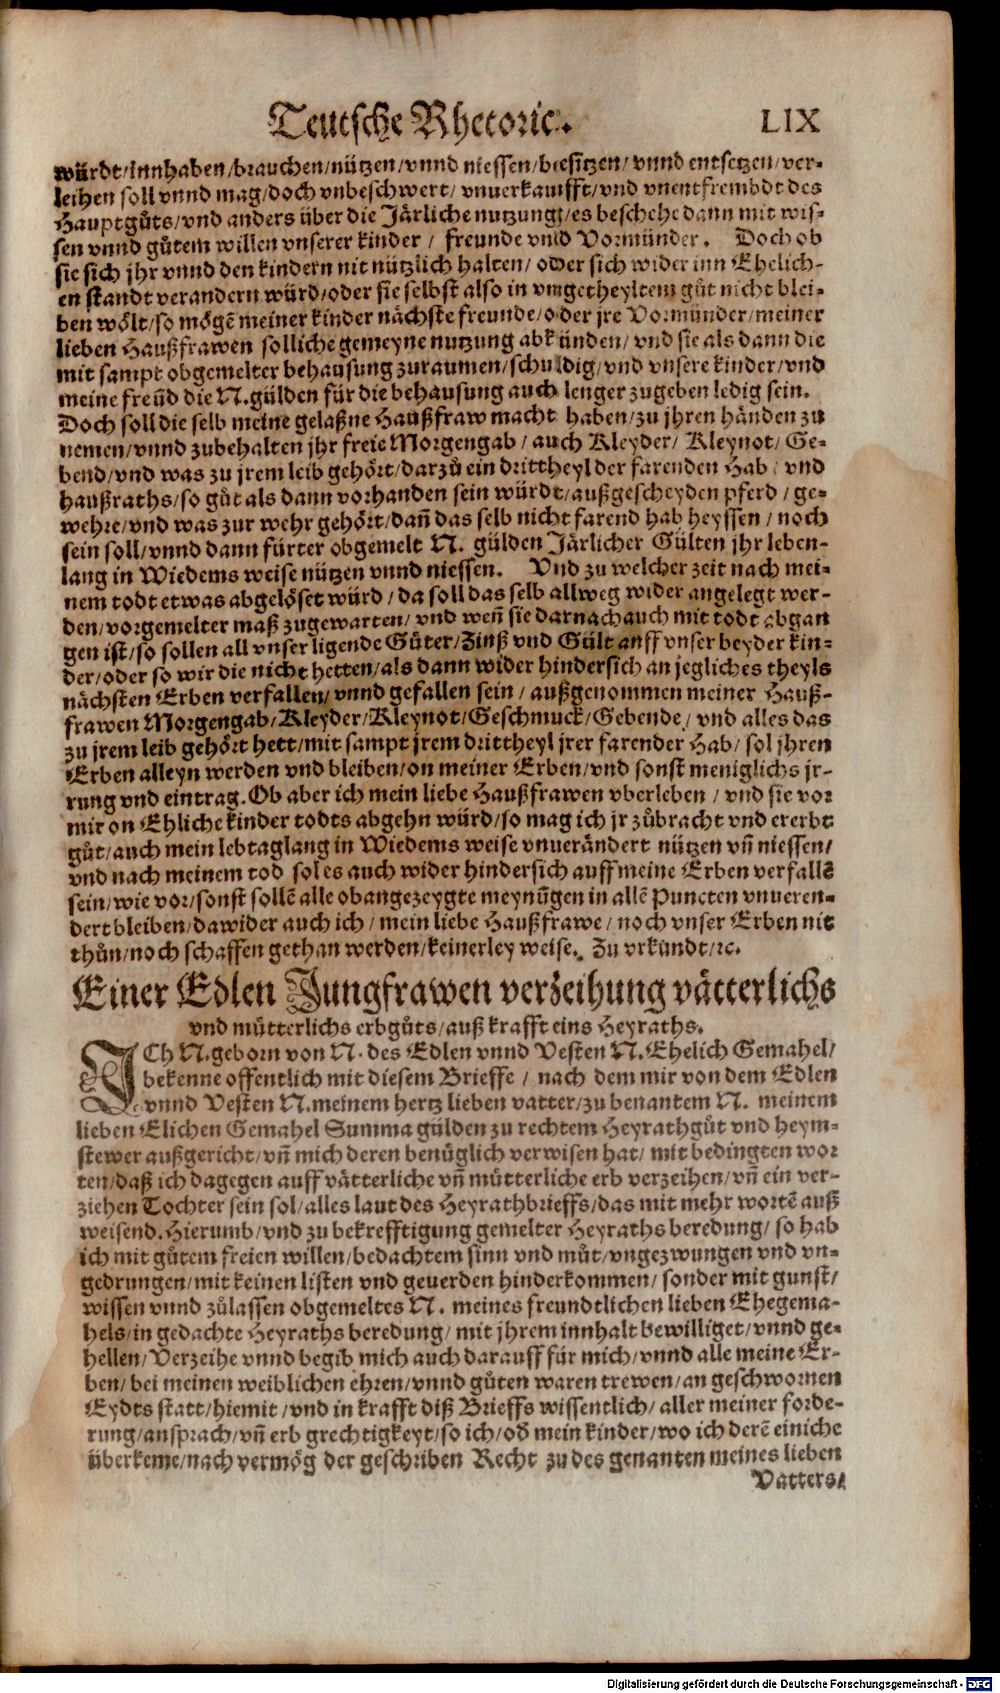 Teutsche Rhetoric. LIX
würdt/innhaben/brauchen/nützen/vnnd niessen/besitzen/vnnd entsetzen/ver-
leihen soll vnnd mag/doch vnbeschwert/vnuerkaufft/vnd vnentfrembdt des
Hauptgůts/vnd anders über die Järliche nutzung/es beschehe dann mit wis-
sen vnnd gůtem willen vnserer kinder/freunde vnnd Vormünder. Doch ob
sie sich jhr vnnd den kindern nit nützlich halten/oder sich wider inn Ehelich-
en standt verandern würd/oder sie selbst also in vngetheyltem gůt nicht blei-
ben wölt/so mögẽ meiner kinder nächste freunde/oder jre Vormünder/meiner
lieben Haußfrawen solliche gemeyne nutzung abkünden/vnd sie als dann die
mit sampt obgemelter behausung zuraumen/schuldig/vnd vnsere kinder/vnd
meine freũd die N.gülden für die behausung auch lenger zugeben ledig sein.
Doch soll die selb meine gelaßne Haußfraw macht haben/zu jhren händen zu
nemen/vnnd zubehalten jhr freie Morgengab/auch Kleyder/Kleynot/Ge-
bend/vnd was zu jrem leib gehört/darzů ein drittheyl der farenden Hab/vnd
haußraths/so gůt als dann vorhanden sein würdt/außgescheyden pferd/ge-
wehre/vnd was zur wehr gehört/dañ das selb nicht farend hab heyssen/noch
sein soll/vnnd dann fürter obgemelt N. gülden Järlicher Gülten jhr leben-
lang in Wiedems weise nützen vnnd niessen. Vnd zu welcher zeit nach mei-
nem todt etwas abgelöset würd/da soll das selb allweg wider angelegt wer-
den/vorgemelter maß zugewarten/vnd weñ sie darnach auch mit todt abgan
gen ist/so sollen all vnser ligende Güter/Zinß vnd Gült auff vnser beyder kin-
der/oder so wir die nicht hetten/als dann wider hindersich an jegliches theyls
nächsten Erben verfallen/vnnd gefallen sein/außgenommen meiner Hauß-
frawen Morgengab/Kleyder/Kleynot/Geschmuck/Gebende/vnd alles das
zu jrem leib gehört hett/mit sampt jrem drittheyl jrer farender Hab/sol jhren
Erben alleyn werden vnd bleiben/on meiner Erben/vnd sonst meniglichs jr-
rung vnd eintrag. Ob aber ich mein liebe Haußfrawen vberleben/vnd sie vor
mir on Ehliche kinder todts abgehn würd/so mag ich jr zůbracht vnd ererbt
gůt/auch mein lebtaglang in Wiedems weise vnuerändert nützen vñ niessen/
vnd nach meinem tod sol es auch wider hindersich auff meine Erben verfallẽ
sein/wie vor/sonst sollẽ alle obangezeygte meynũgen in allẽ Puncten vnueren-
dert bleiben/dawider auch ich/mein liebe Haußfrawe/noch vnser Erben nit
thůn/noch schaffen gethan werden/keinerley weise. Zu vrkundt/ꝛc.
Einer Edlen Jungfrawen verzeihung vätterlichs
vnd mütterlichs erbgůts/auß krafft eins Heyraths.
ICh N.geborn von N. des Edlen vnnd Vesten N.Ehelich Gemahel/
bekenne offentlich mit diesem Brieffe/nach dem mir von dem Edlen
vnnd Vesten N.meinem hertz lieben vatter/zu benantem N. meinem
lieben Elichen Gemahel Summa gülden zu rechtem Heyrathgůt vnd heym-
stewer außgericht/vñ mich deren benüglich verwisen hat/mit bedingten wor
ten/daß ich dagegen auff vätterliche vñ mütterliche erb verzeihen/vñ ein ver-
ziehen Tochter sein sol/alles laut des Heyrathbrieffs/das mit mehr wortẽ auß
weisend. Hierumb/vnd zu bekrefftigung gemelter Heyraths beredung/so hab
ich mit gůtem freien willen/bedachtem sinn vnd můt/vngezwungen vnd vn-
gedrungen/mit keinen listen vnd geuerden hinderkommen/sonder mit gunst/
wissen vnnd zůlassen obgemeltes N. meines freundtlichen lieben Ehegema-
hels/in gedachte Heyraths beredung/mit jhrem innhalt bewilliget/vnnd ge-
hellen/Verzeihe vnnd begib mich auch darauff für mich/vnnd alle meine Er-
ben/bei meinen weiblichen ehren/vnnd gůten waren trewen/an geschwornen
Eydts statt/hiemit/vnd in krafft diß Brieffs wissentlich/aller meiner forde-
rung/ansprach/vñ erb grechtigkeyt/so ich/od̃ mein kinder/wo ich derẽ einiche
überkeme/nach vermög der geschriben Recht zu des genanten meines lieben
Vatters/
Digitalisierung gefördert durch die Deutsche Forschungsgemeinschaft - DFG